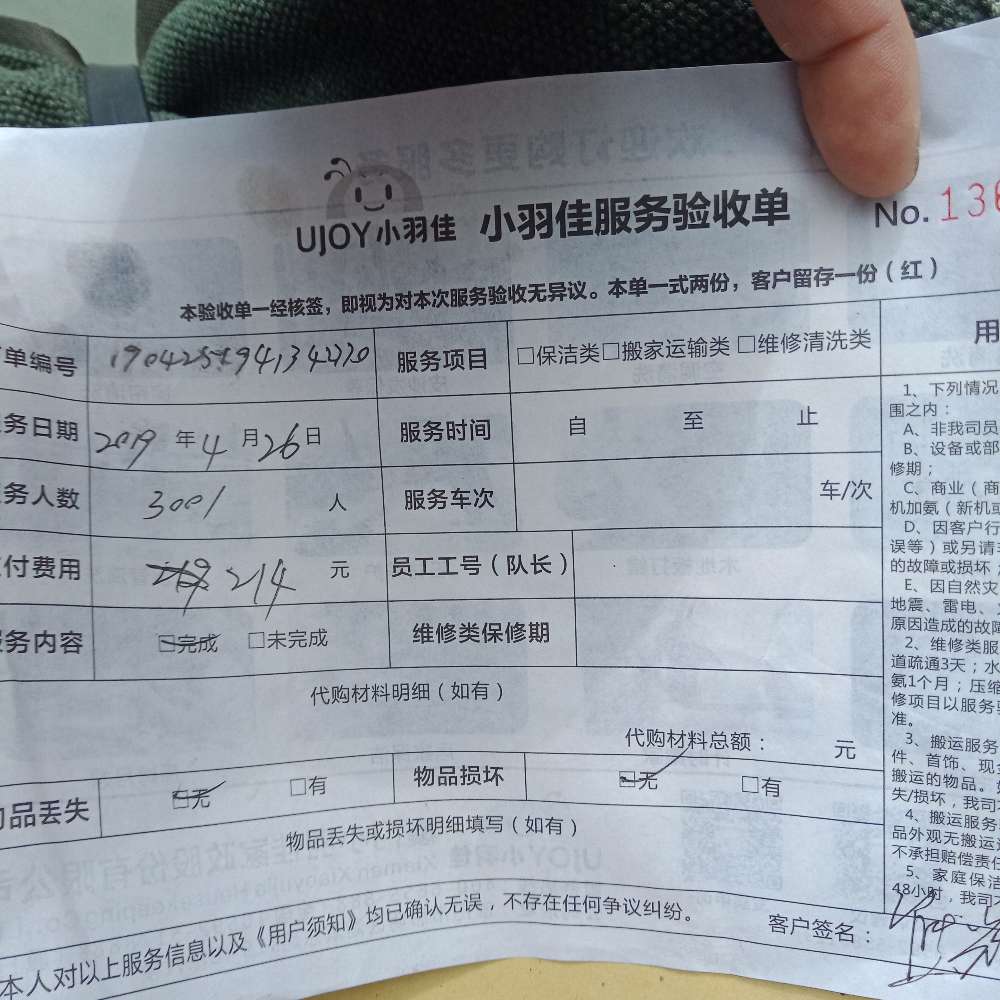 UJOY小羽佳 小羽佳服务验收单
No. 136
本验收单一经核签，即视为对本次服务验收无异议。本单一式两份，客户留存一份（红）
单编号 服务项目 □保洁类□搬家运输类 □维修清洗类
务日期 2019 年 4 月 26 日 服务时间 自 至 止
务人数 3001 人 服务车次 车/次
付费用 214 元 员工工号（队长）
服务内容 □完成 □未完成 维修类保修期
代购材料明细（如有）
代购材料总额： 元
物品丢失 □无 □有 物品损坏 □无 □有
物品丢失或损坏明细填写（如有）
本人对以上服务信息以及《用户须知》均已确认无误，不存在任何争议纠纷。
客户签名：
用
1、下列情况
围之内：
A、非我司员
B、设备或部
修期；
C、商业（商
机加氨（新机或
D、因客户行
误等）或另请
的故障或损坏；
E、因自然灾
地震、雷电、
原因造成的故障
2、维修类服
道疏通3天；水
氨1个月；压缩
修项目以服务
准。
3、搬运服务
件、首饰、现金
搬运的物品。如
失/损坏，我司
4、搬运服务
品外观无搬运
不承担赔偿责任
5、家庭保洁
48小时，我司